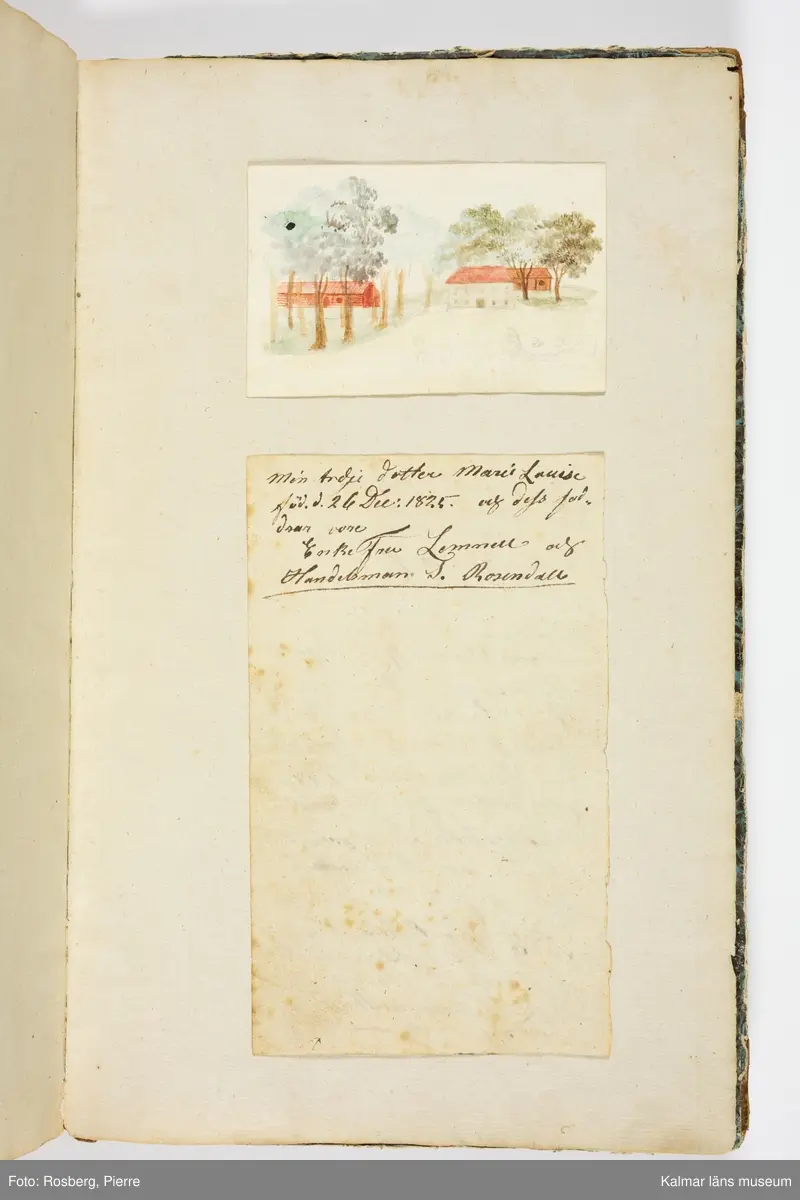 Min tredje dotter Marie Louise
föd. d. 26 Dec: 1825. och dess fad-
drar vore
Enke Fru Lemnell och
Handelsman S. Rosendall
Foto: Rosberg, Pierre
Kalmar läns museum